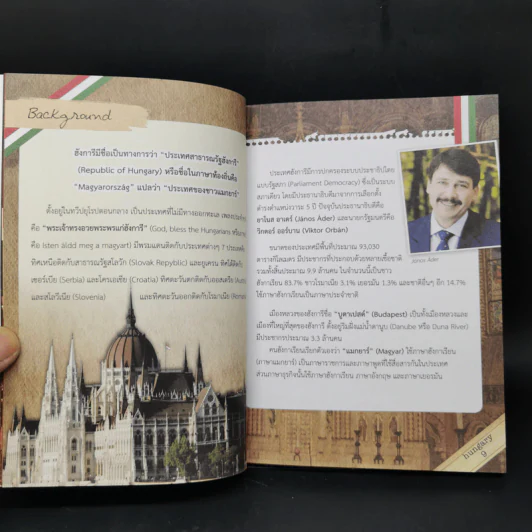 Background
ฮังการีมีชื่อเป็นทางการว่า "ประเทศสาธารณรัฐฮังการี"
(Republic of Hungary) หรือชื่อในภาษาท้องถิ่นคือ
"Magyarország" แปลว่า "ประเทศของชาวแมกยาร์"
ตั้งอยู่ในทวีปยุโรปตอนกลาง เป็นประเทศที่ไม่มีทางออกทะเล
คือ "พระเจ้าทรงอวยพรพวกแก่ฮังการี" (God, bless the Hungarians
คือ Isten áldd meg a magyart) มีพรมแดนติดกับประเทศต่างๆ 7
ทิศเหนือติดกับสาธารณรัฐสโลวัก (Slovak Republic) และยูเครน ทิศใต้ติดกับ
เซอร์เบีย (Serbia) และโครเอเชีย (Croatia) ทิศตะวันตกติดกับออสเตรีย
และสโลวีเนีย (Slovenia) ทิศตะวันออกติดกับโรมาเนีย
ประเทศฮังการีมีการปกครองระบบประชาธิปไตย
แบบรัฐสภา (Parliament Democracy) ซึ่งเป็นระบบ
สภาเดียว โดยมีประธานาธิบดีมาจากการเลือกตั้ง
ดำรงตำแหน่งวาระ 5 ปี ปัจจุบันประธานาธิบดีคือ
ยาโนส อาเดร์ (János Áder) และนายกรัฐมนตรีคือ
วิกเตอร์ ออร์บาน (Viktor Orbán)
János Áder
ขนาดของประเทศมีพื้นที่ประมาณ 93,030
ตารางกิโลเมตร มีประชากรที่ประกอบด้วยหลายเชื้อชาติ
รวมทั้งสิ้นประมาณ 9.9 ล้านคน ในจำนวนนี้เป็นชาว
ฮังกาเรียน 83.7% ชาวโรมาเนีย 3.1% เยอรมัน 1.3% และชาติอื่นๆ อีก 14.7%
ใช้ภาษาฮังกาเรียนเป็นภาษาประจำชาติ
เมืองหลวงของฮังการีชื่อ "บูดาเปสต์" (Budapest) เป็นทั้งเมืองหลวงและ
เมืองที่ใหญ่ที่สุดของฮังการี ตั้งอยู่ริมฝั่งแม่น้ำดานูบ (Danube หรือ Duna River)
มีประชากรประมาณ 3.3 ล้านคน
คนฮังกาเรียนเรียกตัวเองว่า "แมกยาร์" (Magyar) ใช้ภาษาฮังกาเรียน
(ภาษาแมกยาร์) เป็นภาษาราชการและภาษาพูดที่ใช้สื่อสารกันในประเทศ
ส่วนภาษาธุรกิจนั้นใช้ภาษาฮังกาเรียน ภาษาอังกฤษ และภาษาเยอรมัน
hungary
9